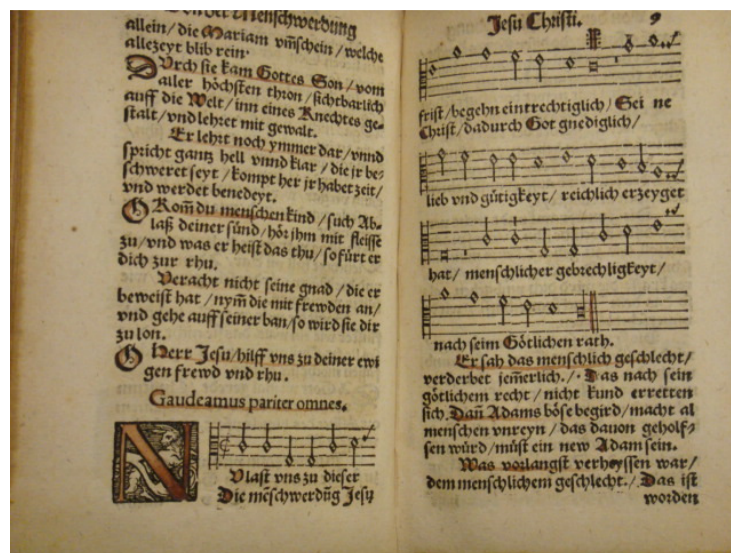 Von der Menschwerdūng
allein/die Mariam vm̄schein/welche
allezeyt blib rein.
DVrch sie kam Gottes Son/vom
aller höchsten thron/sichtbarlich
auff die Welt/inn eines Knechtes ge-
stalt/vnd lehret mit gewalt.
Er lehrt noch ymmer dar/vnnd
spricht gantz hell vnnd klar/die jr be-
schweret seyt/kompt her jr habet zeit/
vnd werdet benedeyt.
O Kom̄ du menschen kind/such Ab-
laß deiner sünd/hör jhm mit fleisse
zu/vnd was er heist das thu/so fürt er
dich zur rhu.
Veracht nicht seine gnad/die er
beweist hat/nym̄ die mit frewden an/
vnd gehe auff seiner ban/so wird sie dir
zu lon.
O Herr Jesu/hilff vns zu deiner ewi
gen frewd vnd rhu.
Gaudeamus pariter omnes.
NVlast vns zu dieser
Die mēschwerdūg Jesu
Jesu Christi. 9
frist/begehn eintrechtiglich/ Sei ne
Christ/dadurch Got gnediglich/
lieb vnd gütigkeyt/ reichlich erzeyget
hat/ menschlicher gebrechligkeyt/
nach seim Götlichen rath.
Er sah das menschlich geschlecht/
verderbet jem̄erlich./. Das nach sein
götlichem recht/nicht kund erretten
sich. Dan̄ Adams böse begird/macht al
menschen vnreyn/das dauon geholf-
sen würd/müst ein new Adam sein.
Was vorlangst verheyssen war/
dem menschlichem geschlecht./. Das ist
worden